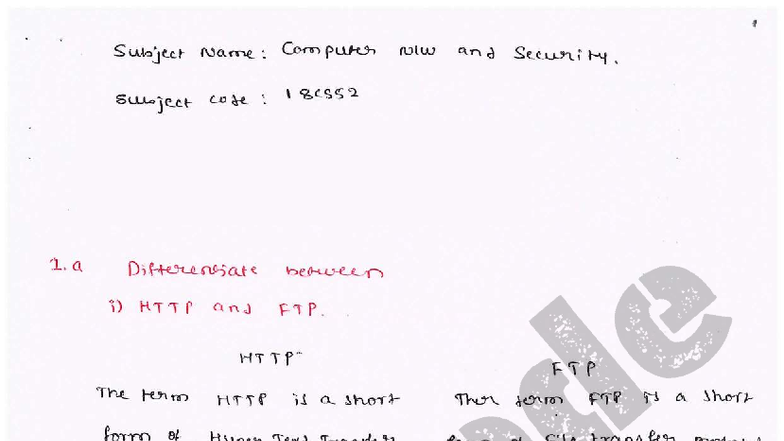 Subject Name: Computer N/w and Security.
Subject code: 18CS52
1.a Differentiate between
i) HTTP and FTP.
HTTP FTP
The term HTTP is a short Ther term FTP is a short
form of